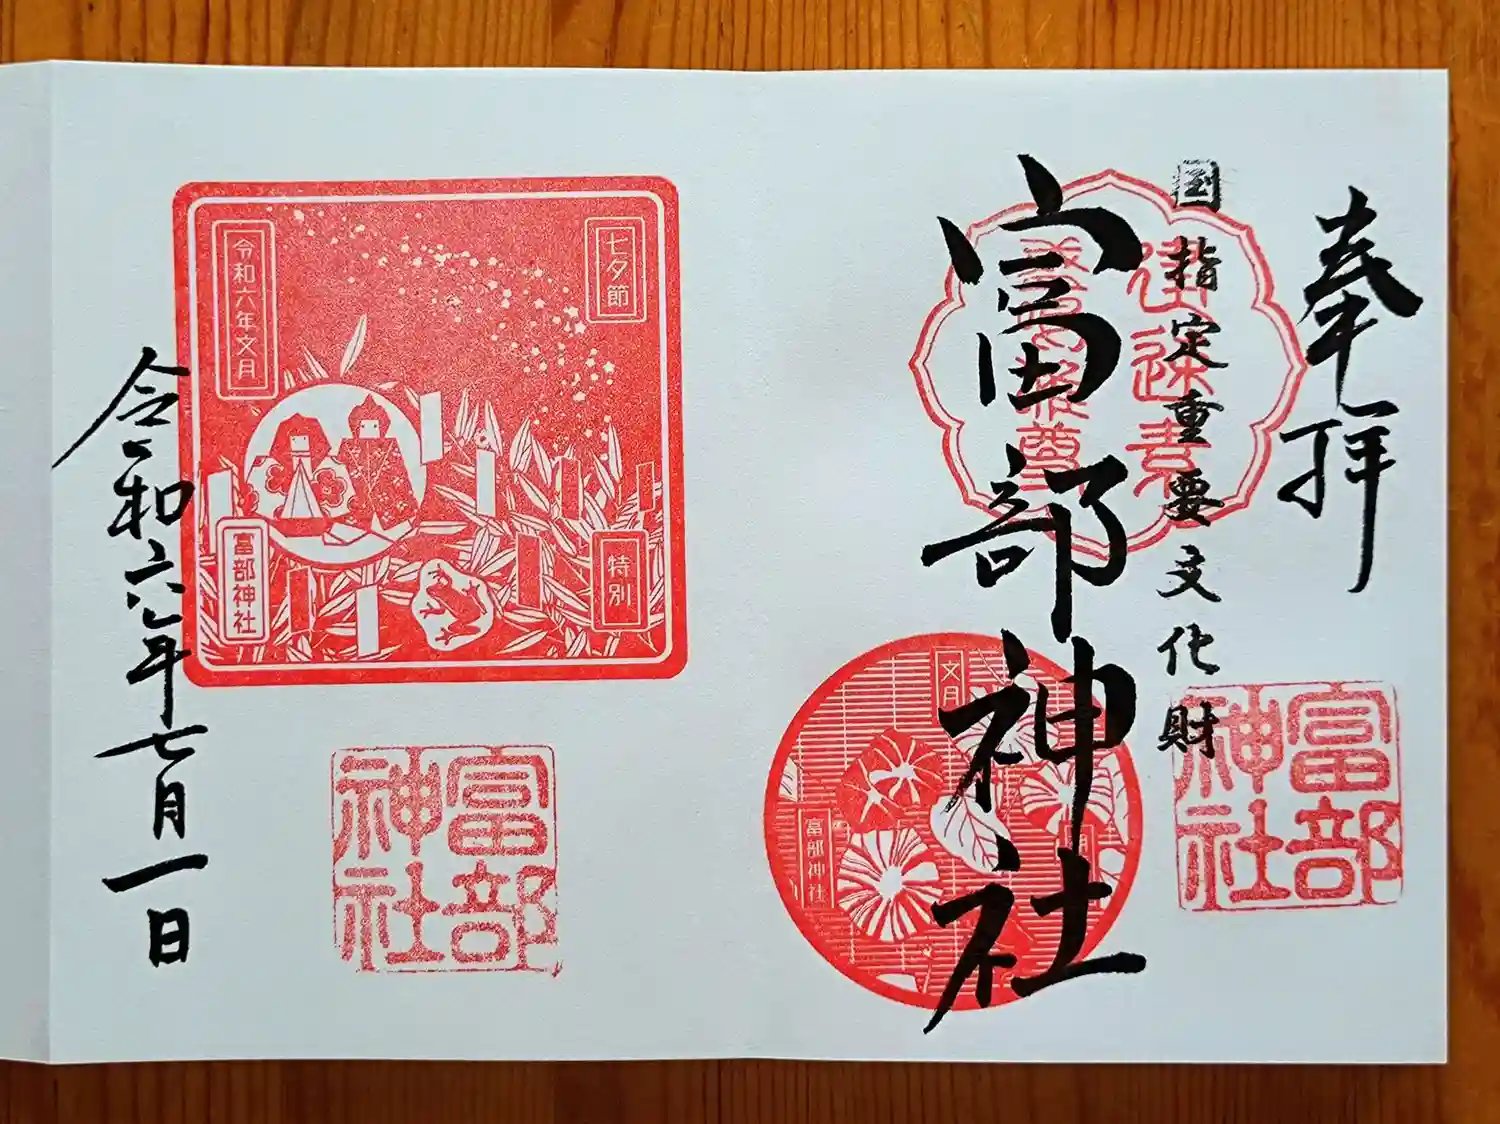 奉拝
国指定重要文化財
建速素
尊
富部神社
富部
神社
文月
富部神社
七夕節
令和六年文月
特別
富部神社
富部
神社
令和六年七月一日